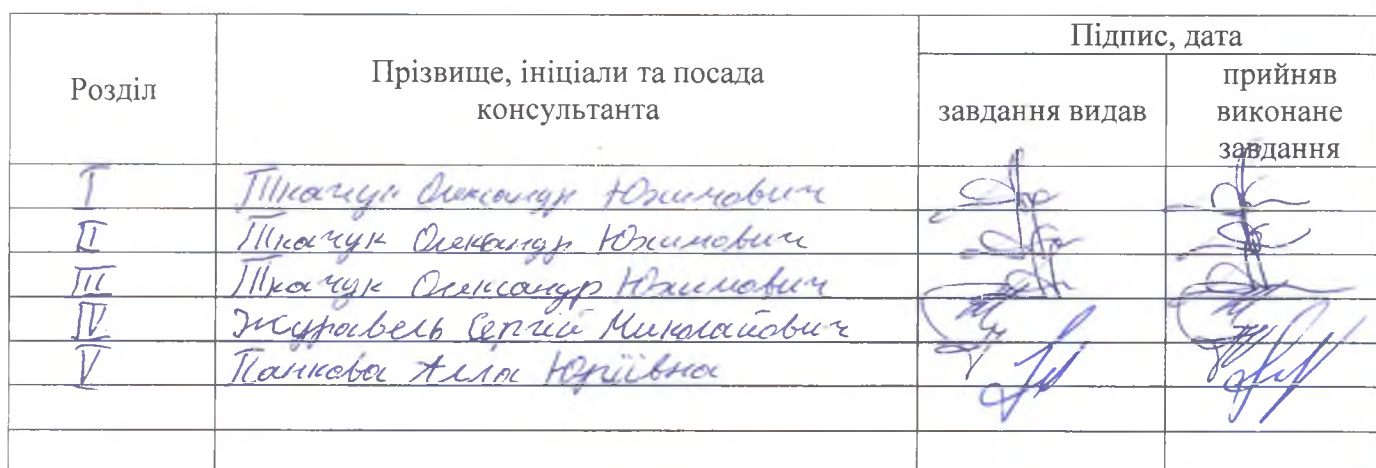 Розділ
Прізвище, ініціали та посада
консультанта
Підпис, дата
завдання видав
прийняв
виконане
завдання
I Ткачук Олександр Юхимович
II Ткачук Олександр Юхимович
III Ткачук Олександр Юхимович
IV Журавель Сергій Миколайович
V Панкова Алла Юріївна